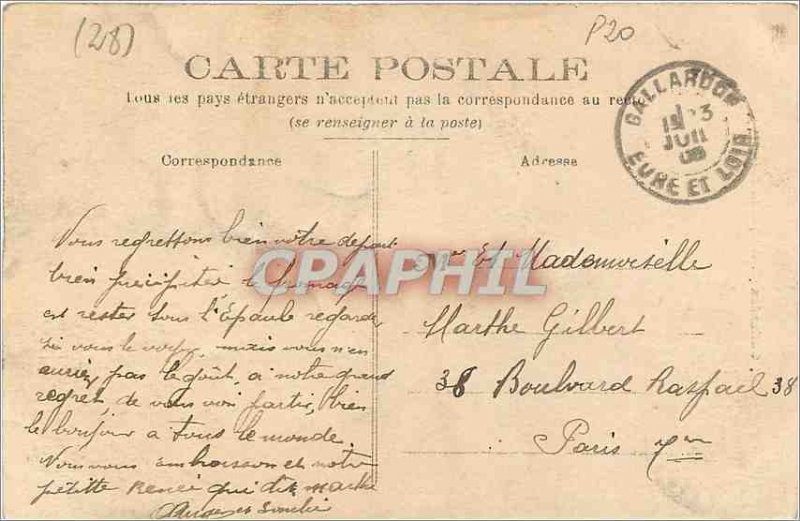 (28)
P20
CARTE POSTALE
Tous les pays étrangers n'acceptent pas la correspondance au recto
(se renseigner à la poste)
GALLARDON
13
JUIL
08
EURE ET LOIR
Correspondance
Adresse
Vous regrettons bien votre depart
bien précipiter le fromage
est rester sous l'Épaule regarde
si vous le voyez mais vous n'en
auriez pas le goût, a notre grand
regret, de vous voir partir, bien
le bonjour a tous le monde.
Nous vous embrasson et notre
petitte Renée qui dit marthe
CPAPHIL
Mme Et Mademoiselle
Marthe Gilbert
38 Boulvard Raspail 38
Paris 7em